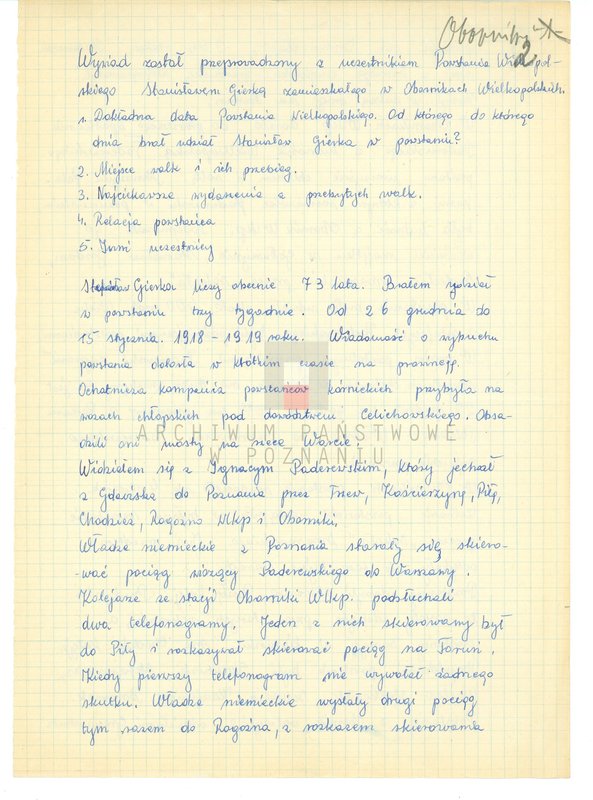 Oborniki
2
Wywiad został przeprowadzony z uczestnikiem Powstania Wielkopol-
skiego Stanisławem Gierką zamieszkałego w Obornikach Wielkopolskich.
1. Dokładna data Powstania Wielkopolskiego. Od którego do którego
dnia brał udział Stanisław Gierka w powstaniu?
2. Miejsce walk i ich przebieg.
3. Najciekawsze wydarzenia z przebytych walk.
4. Relacja powstańca
5. Inni uczestnicy
Stanisław Gierka liczy obecnie 73 lata. Brałem udział
w powstaniu trzy tygodnie. Od 26 grudnia do
15 stycznia. 1918 - 1919 roku. Wiadomość o wybuchu
powstania dotarła w krótkim czasie na prowincję.
Ochotnicza kompania powstańców kórnickich przybyła na
wozach chłopskich pod dowództwem Celichowskiego. Obsa-
dzili oni mosty na rzece Warcie.
ARCHIWUM PAŃSTWOWE
W POZNANIU
Widziałem się z Ignacym Paderewskim, który jechał
z Gdańska do Poznania przez Tczew, Kościerzynę, Piłę,
Chodzież, Rogoźno Wlkp i Oborniki.
Władze niemieckie z Poznania starały się skiero-
-wać pociąg wiozący Paderewskiego do Warszawy.
Kolejarze ze stacji Oborniki Wlkp. podsłuchali
dwa telefonogramy. Jeden z nich skierowany był
do Piły i rozkazywał skierować pociąg na Toruń.
Kiedy pierwszy telefonogram nie wywołał żadnego
skutku. Władze niemieckie wysłały drugi pociąg
tym razem do Rogoźna, z rozkazem skierowania